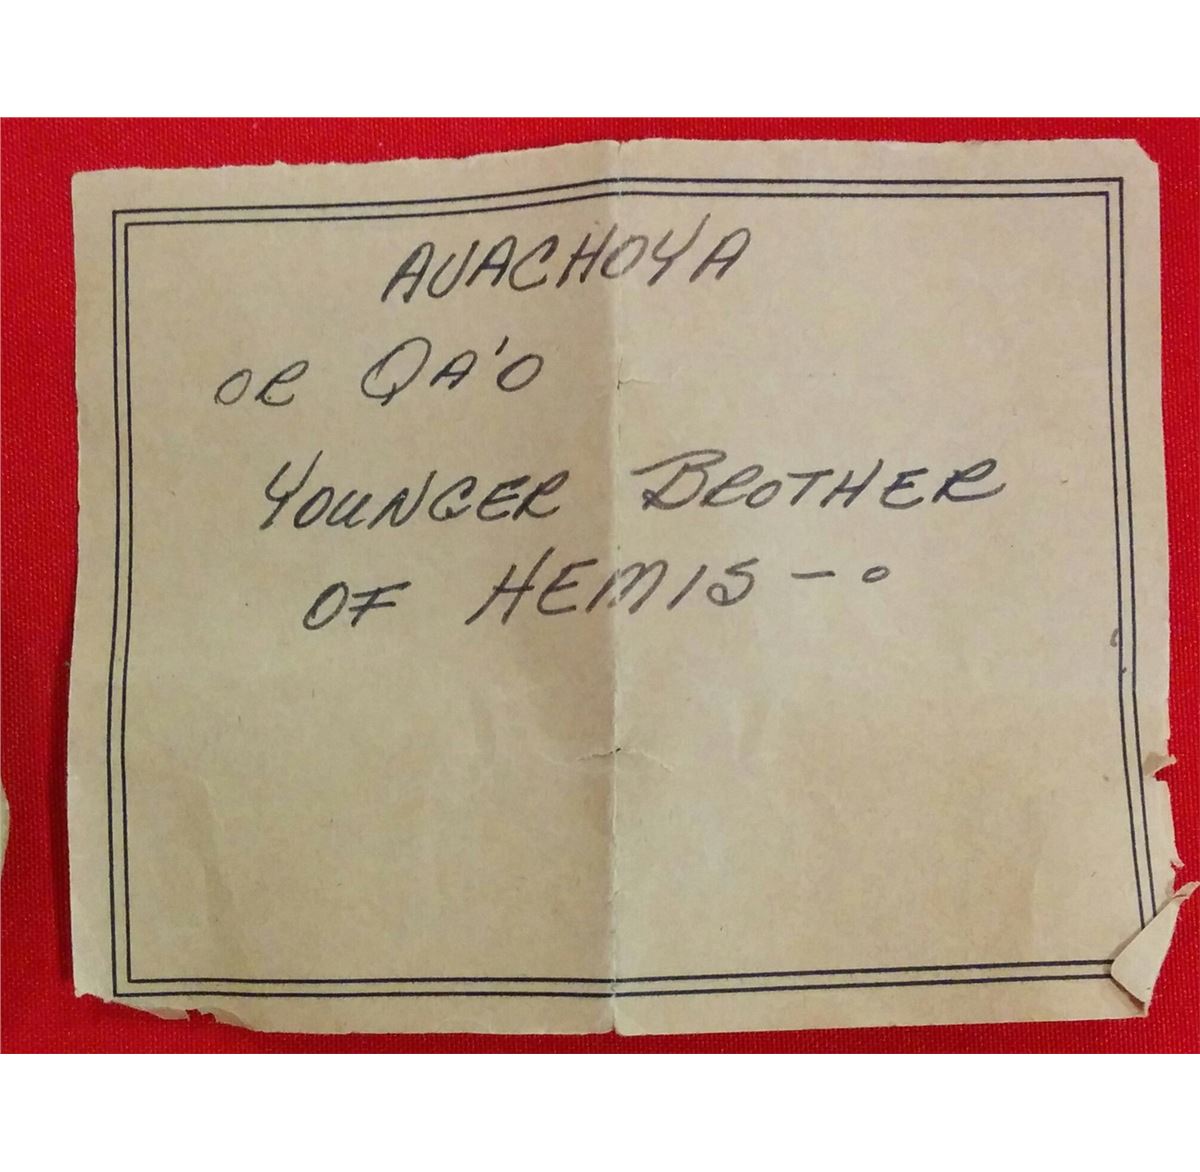 AVACHOYA
OR QA'O
YOUNGER BROTHER
OF HEMIS - o